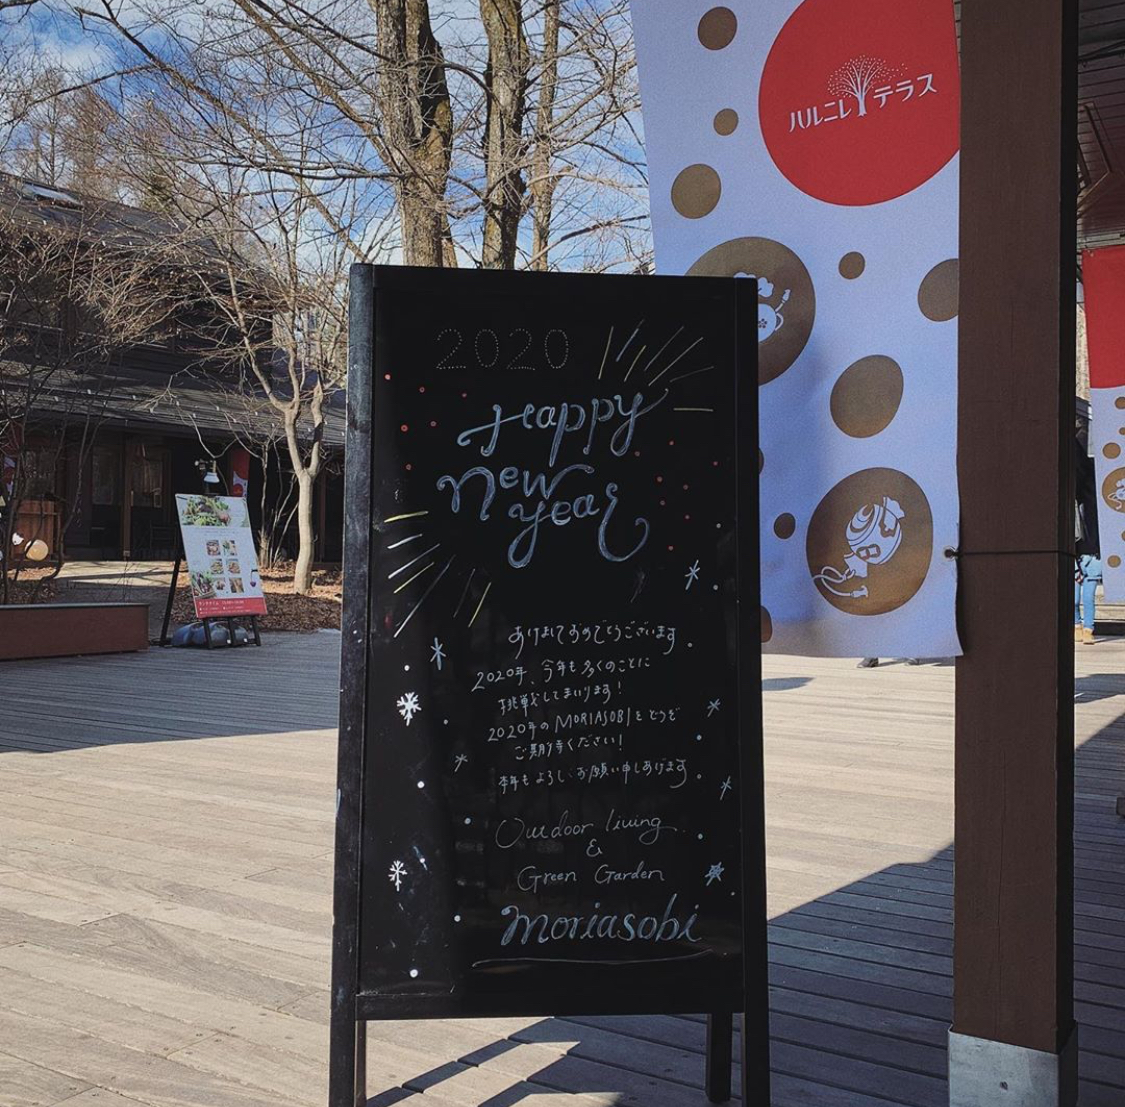 ハルニレテラス
2020
Happy
new
year
あけましておめでとうございます。
2020年、今年も多くのことに
挑戦してまいります！
2020年のMORIASOBIをどうぞ
ご期待ください！
本年もよろしくお願い申しあげます。
Outdoor living
&
Green Garden
moriasobi